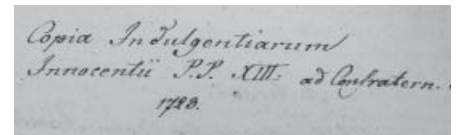 Copia Indulgentiarum
Innocentii P.P. XIII. ad Confratern.
1723.